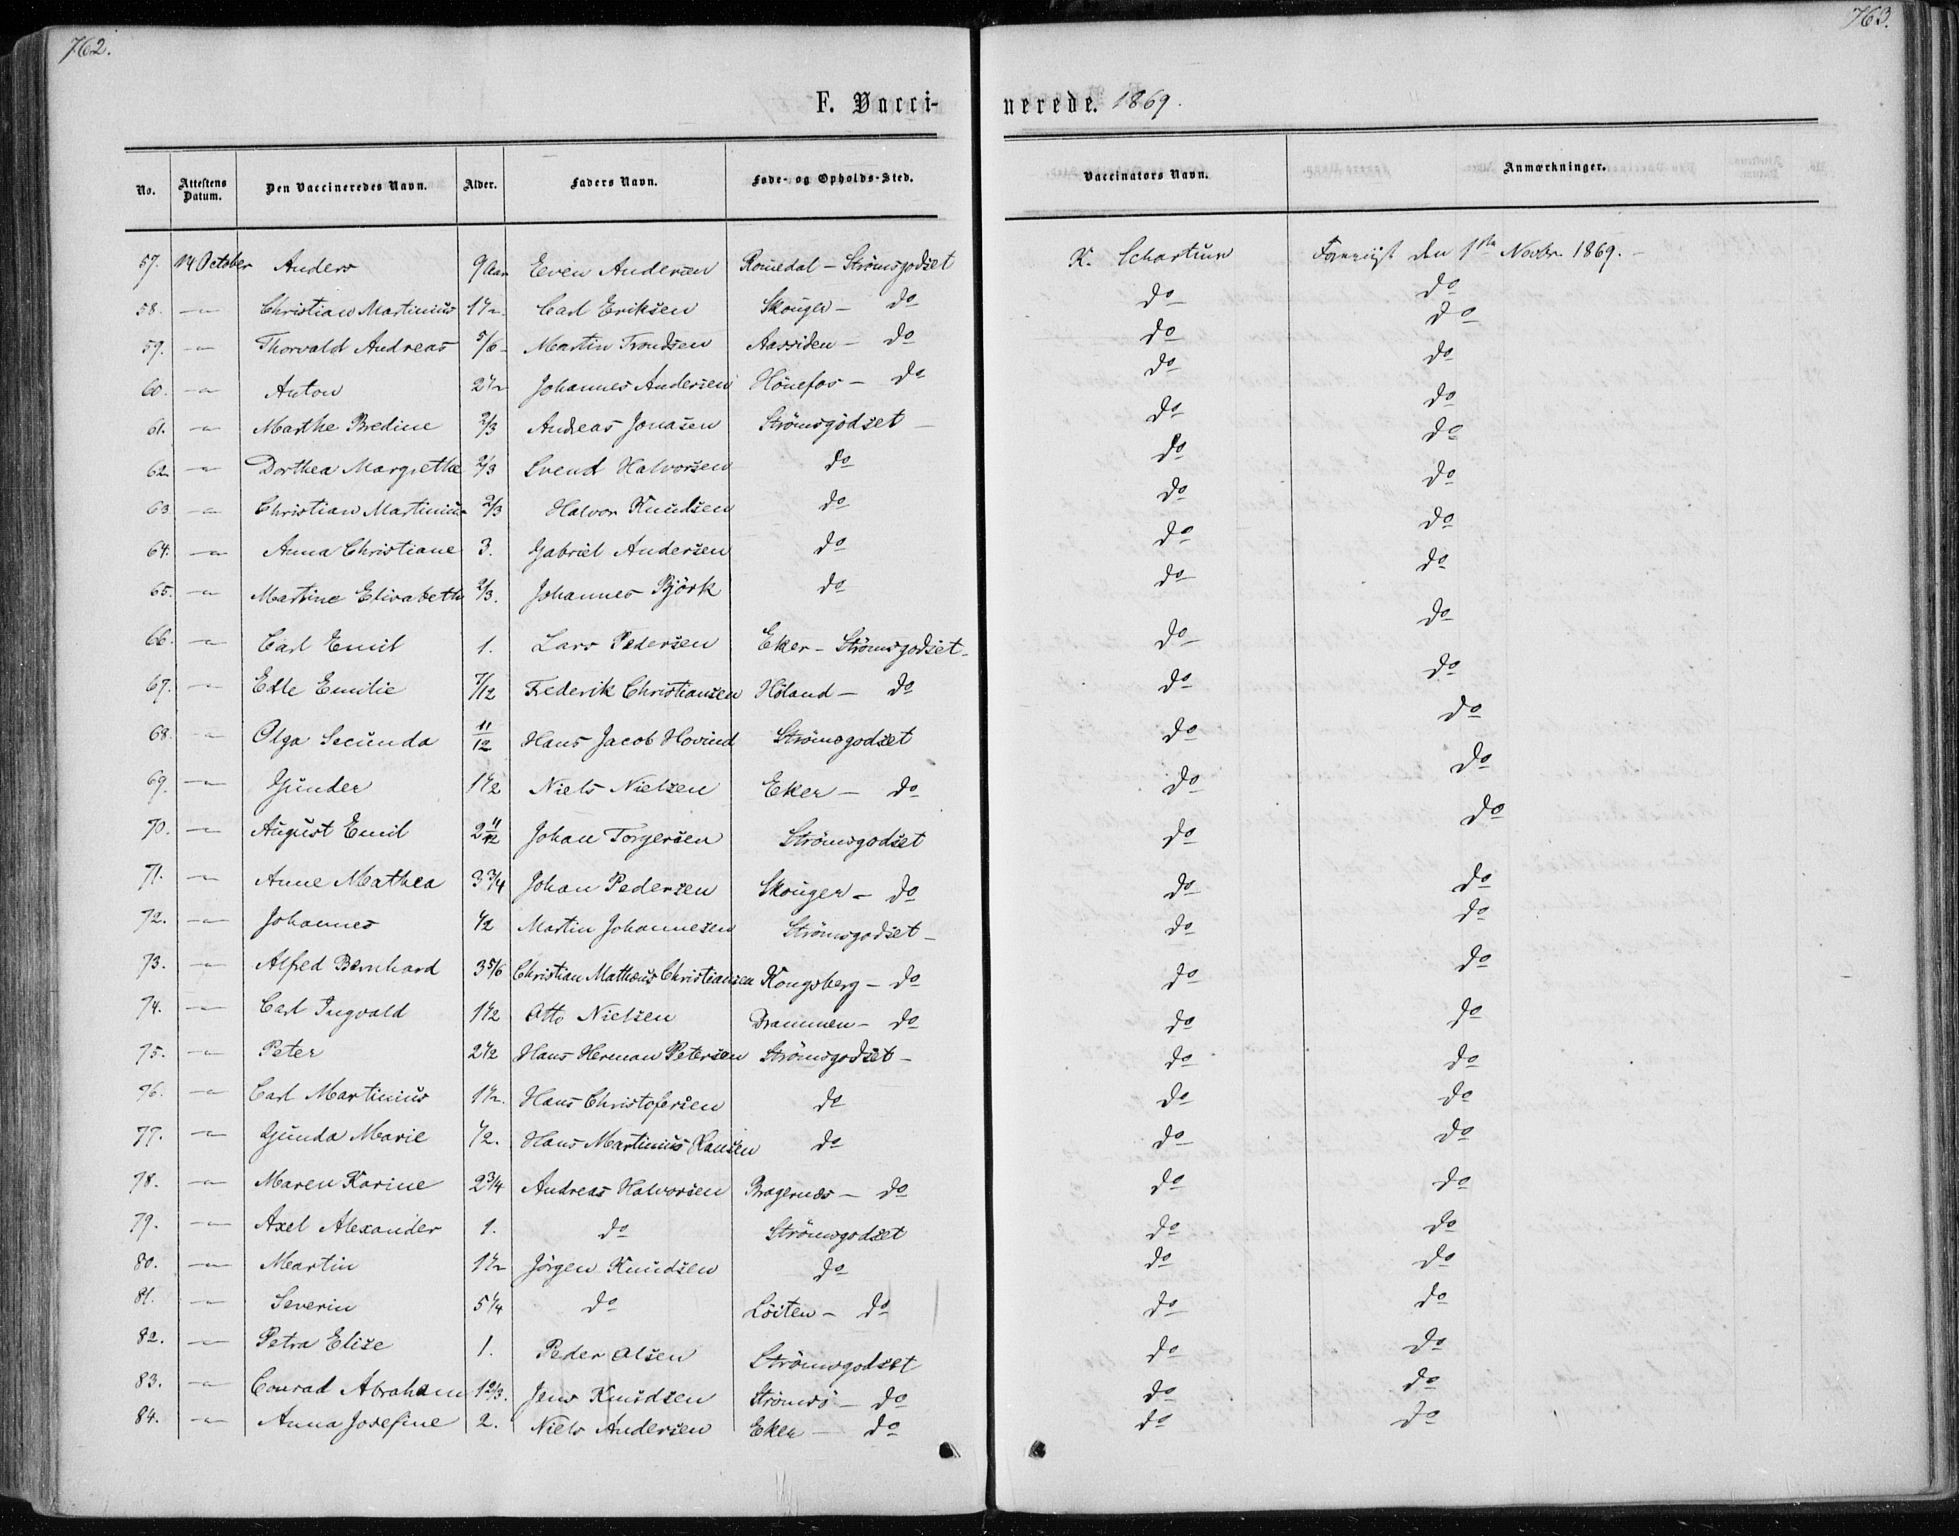 762.
763.
F. Vacci-
nerede. 1869.
No. Attestens Datum. Den Vaccineredes Navn. Alder. Faders Navn. Føde- og Opholds-Sted. Vaccinators Navn. Anmærkninger.
57. 14 October Anders 9 Aar Even Andersen Romedal - Strömsgodset K. Schartum Foreviist den 1ste Novbr. 1869. -
58. -"- Christian Martinius 1 1/2. Carl Eriksen Skouger - do do do
59. -"- Thorvald Andreas 5/6 Martin Trondsen Aassiden - do do do
60. -"- Anton 2 1/2 Johannes Andersen Hönefos - do do do
61. -"- Marthe Bredine 2/3 Andreas Jonasen Strömsgodset - do do
62. -"- Dorthea Margrethe 2/3 Svend Halvorsen do do do
63 -"- Christian Martinius 2/3 Halvor Knudsen do do do
64. -"- Anna Christiane 3. Gabriel Andersen do do do
65. -"- Martine Elisabeth 2/3. Johannes Björk do do do
66. -"- Carl Emil 1. Lars Pedersen Eker - Strömsgodset - do do
67. -"- Edle Emilie 7/12 Frederik Christiansen Höland - do do do
68. -"- Olga Secunda 11/12 Hans Jacob Hovind Strömsgodset do do
69. -"- Gunder 1 1/2 Niels Nielsen Eker - do do do
70. -"- August Emil 2 11/12 Johan Torgersen Strömsgodset do do
71. -"- Anne Mathea 3 3/4 Johan Pedersen Skouger - do do do
72. -"- Johannes 1/2 Martin Johannesen Strömsgodset - do do
73. -"- Alfred Bernhard 3 5/6 Christian Mathæus Christiansen Kongsberg - do do do
74. -"- Carl Ingvald 1 1/2 Otto Nielsen Drammen - do do do
75. -"- Peter 2 1/2 Hans Herman Petersen Strömsgodset - do do
76. -"- Carl Martinius 1 1/2. Hans Christofersen do do do
77. -"- Gunda Marie 1/2. Hans Martinius Hansen do do do
78. -"- Maren Karine 2 3/4 Andreas Halvorsen Bragernæs - do do do
79. -"- Axel Alexander 1. do Strömsgodset do do
80. -"- Martin 1 1/2 Jörgen Knudsen do do do
81. -"- Severin 5 1/4 do Löiten - do do do
82. -"- Petra Elise 1. Peder Olsen Strömsgodset do do
83. -"- Conrad Abraham 1 2/3. Jens Knudsen Strömsö - do do do
84. -"- Anna Josefine 2. Niels Andersen Eker - do do do